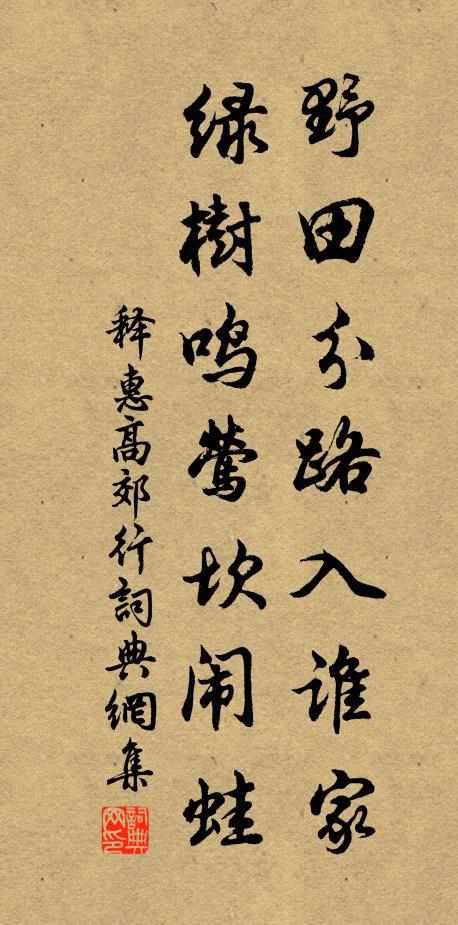 野田分路入谁家
绿樹鸣莺坎闹蛙
释惠高郊行詞典網集
詞典網印